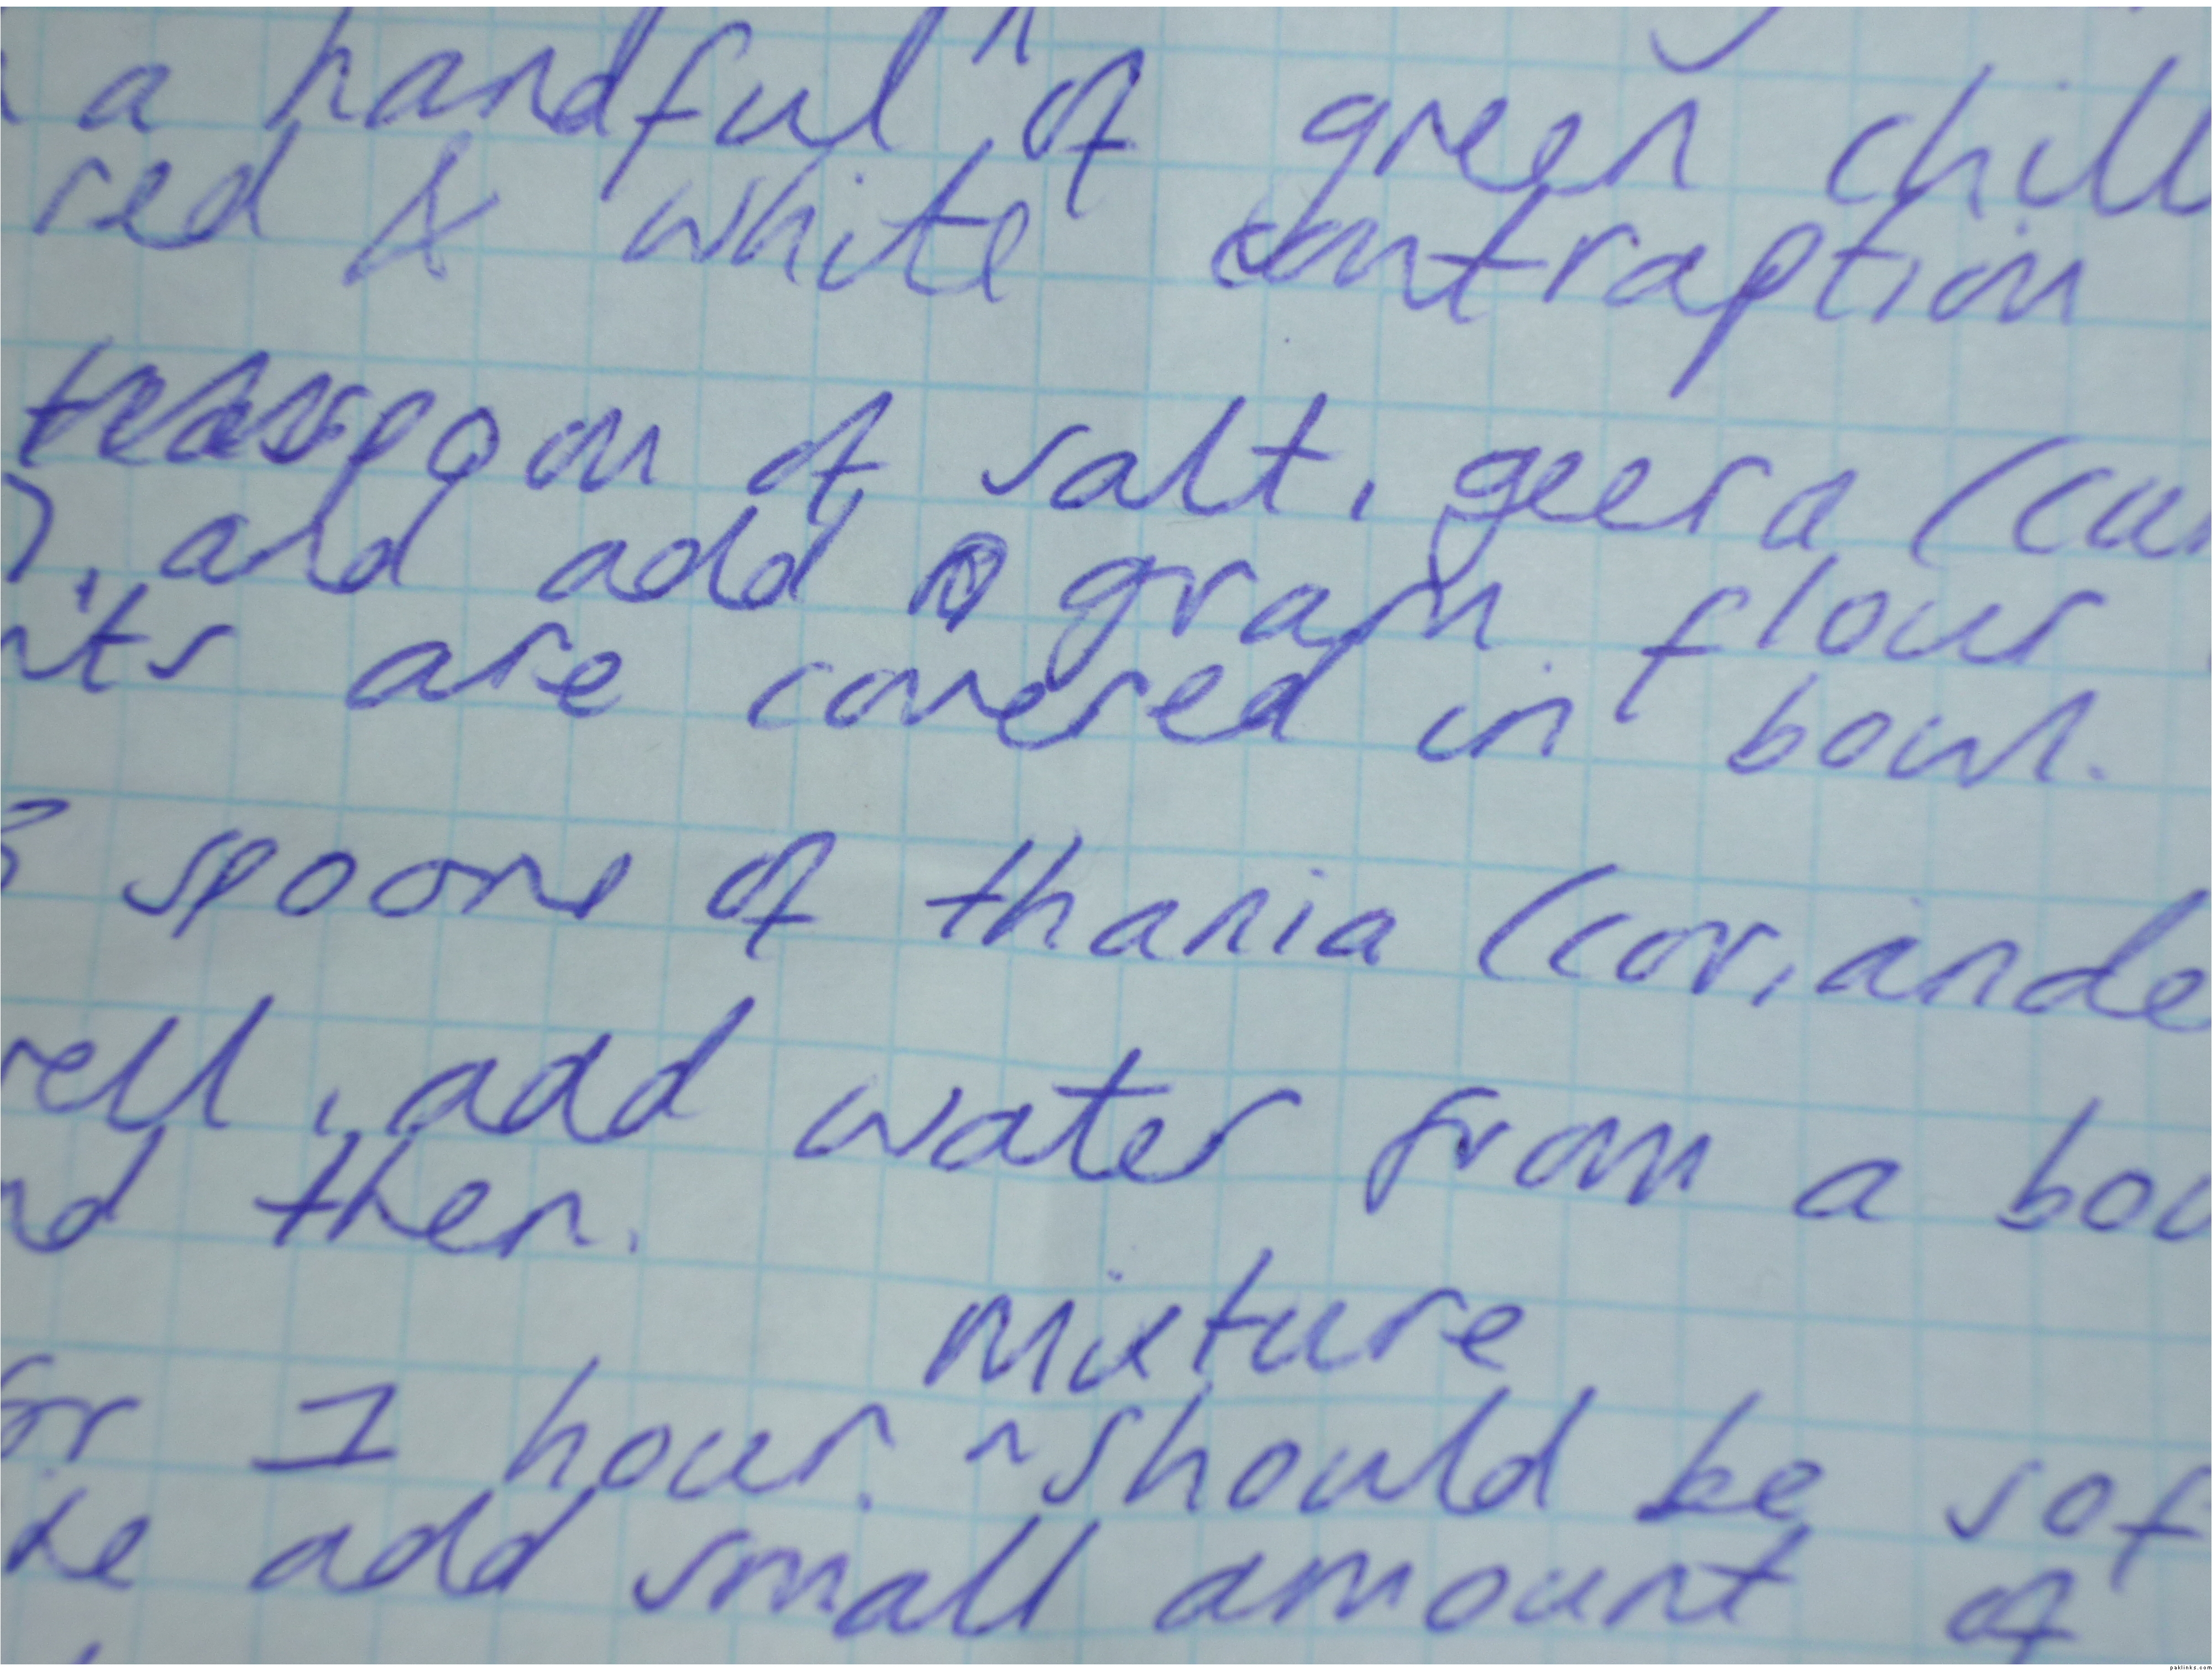 a handful of green chill
red & white contraption
teaspoon of salt, geera (cu
), and add gram flour
nts are covered in bowl.
3 spoons of thania (coriande
well, add water from a bow
nd then.
mixture
for 1 hour. ^ should be sof
add small amount of
paklinks.com